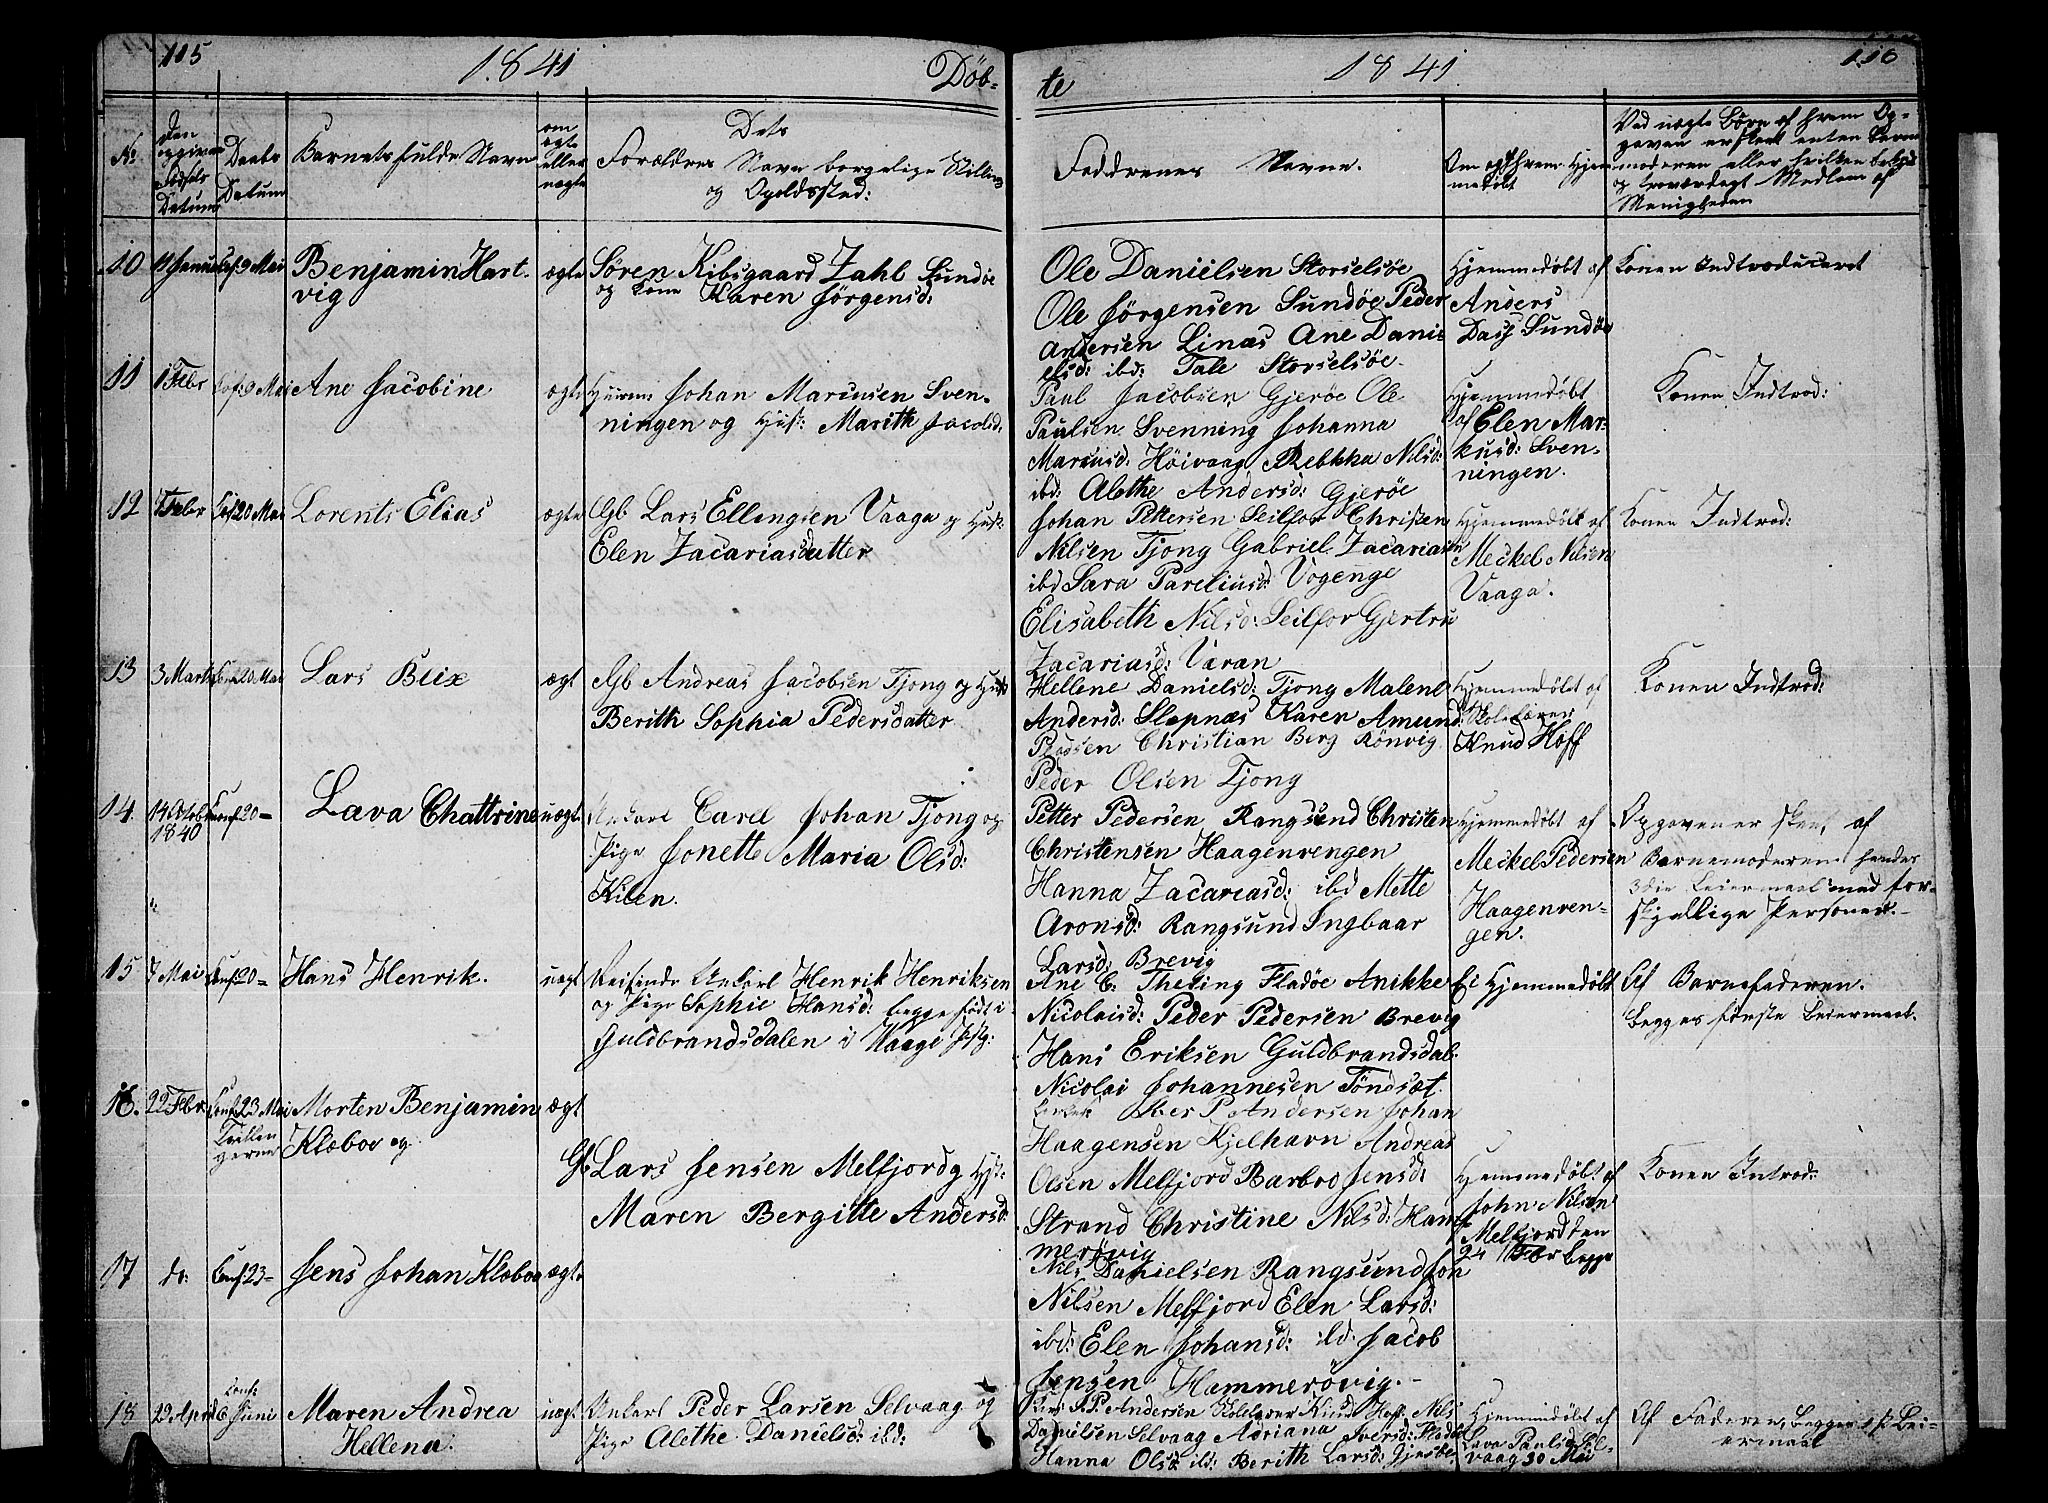 115
1841
Døb-
te
1841
116
No
Den opgivne Fødsels Datum
Daabs Datum
Barnets fulde Navn
om ægte eller uægte
Dets
Forældres Navn borgelige Stilling
og Opoldssted:
Faddrenes Navne.
Om og af hvem Hjem-
medøbt
Ved uægte Børn af hvem Op-
given er skeet enten Barne
moderen eller hvilken bekjendt
og troværdigt Medlem af
Menigheden
10 9 Mai Benjamin Hart-
vig
ægte Søren Kibsgaard Zahl Sundøe
og Kone Karen Jørgensd:
Ole Danielsen Storselsöe
Ole Jørgensen Sundöe Peder
Andersen Linæs Ane Dani-
elsd: ibd: Tale Storselsöe
Hjemmedøbt af
Anders
Dass Sundöe
Konen Indtroduceret
11 1 Febr 9 Mai Ane Jacobine
ægte Johan Marcusen Sven-
ningen og Hust: Marith Jacobsd.
Paul Jacobsen Gjeröe Ole
Paulsen Svenning Johanna
Marcusd: Höivaag Rebkka Nilsd:
ibd: Alethe Andersd: Gjeröe
Hjemmedøbt
af Elen Mar-
kusd: Sven-
ningen.
Konen Indtrod:
12 7 Febr 20 Mai Lorents Elias
ægte Gb Lars Ellingsen Vaaga og Hust:
Elen Zacariasdatter
Johan Pettersen Seilfor Christen
Nilsen Tjong Gabriel Zacariasen
ibd Sara Pareliusd: Vogenge
Elisabeth Nilsd: Seilfor Gjertru
Zacariasd: Varan
Hjemmedøbt af
Meckel Nilsen
Vaaga.
Konen Indtrod:
13 3 Marts 20 Mai Lars Blix
ægt Gb Andreas Jacobsen Tjong og Hust
Berith Sophia Pedersdatter
Hellene Danielsd: Tjong Malene
Andersd: Slapnæs Karen Amund
Christian Berg Rönvig
Peder Olsen Tjong
Hjemmedøbt af
Skolelærer
Knud Hoff
Konen Indtrod:
14. 14 Octobr
1840
Conf 20- Lava Chattrine
uægt Unkarl Carel Johan Tjong og
Pige Jonette Maria Olsd:
Kilen.
Petter Pedersen Rangsund Christen
Christensen Haagenvengen
Hanna Zacariasd: ibd Mette
Aronsd: Rangsund Ingbaar
Larsd: Brevig
Hjemmedøbt af
Meckel Pedersen
Haagenven-
gen.
Opgaven er skeet af
Barnemoderen hendes
3die Leiermaal med for-
skjellige Personer.-
15 7 Mai Conf 20= Hans Henrik.
uægt Reisende Unkarl Henrik Henriksen
og Pige Sophie Hansd: begge født i
Guldbrandsdalen i Vaage Pstg:
Ane C: Theting Fladöe Anikke
Nicolaisd: Peder Pedersen Brevig
Hans Eriksen Guldbrandsdal
Nicolai Johannesen Töndset
Ei Hjemmedøbt
Af Barnefaderen.
begges første Leiermaal.
16. 22 Febr Conf 23 Mai
Tvillin
gerne
Morten Benjamin
Klæboe og
ægt
Gb Lars Jensen Melfjord og Hst:
Maren Bergitte Andersd:
Iver P Andersen Johan
Haagensen Kjelhavn Andreas
Olsen Melfjord Barbro Jensd:
Strand Christine Nilsd: Ham
merövig
Hjemmedøbt af
John Nilsen
Melfjord den
24 Febr begge
Konen Introd:
17 do: Conf 23- Jens Johan Klæboe ægte
Nils Danielsen Rangsund Jon
Nilsen Melfjord Elen Larsd:
ibd: Elen Johansd: ibd: Jacob
Jensen Hammerövig.-
18 29 April Conf: 6 Juni Maren Andrea
Hellena.
uægt Unkarl Peder Larsen Selvaag og
Pige Alethe Danielsd: ibd:
P. Andersen Skolelærer Knud Hoff Nils
Danielsen Selvaag Adriana Iversd: Fladöe
Hanna Olsd: ibd: Berith Larsd:
Hjemmedøbt af
Lava Paulsd Sel-
vaag 30 Mai
Af Faderen, begges 1ste Lei-
ermaal